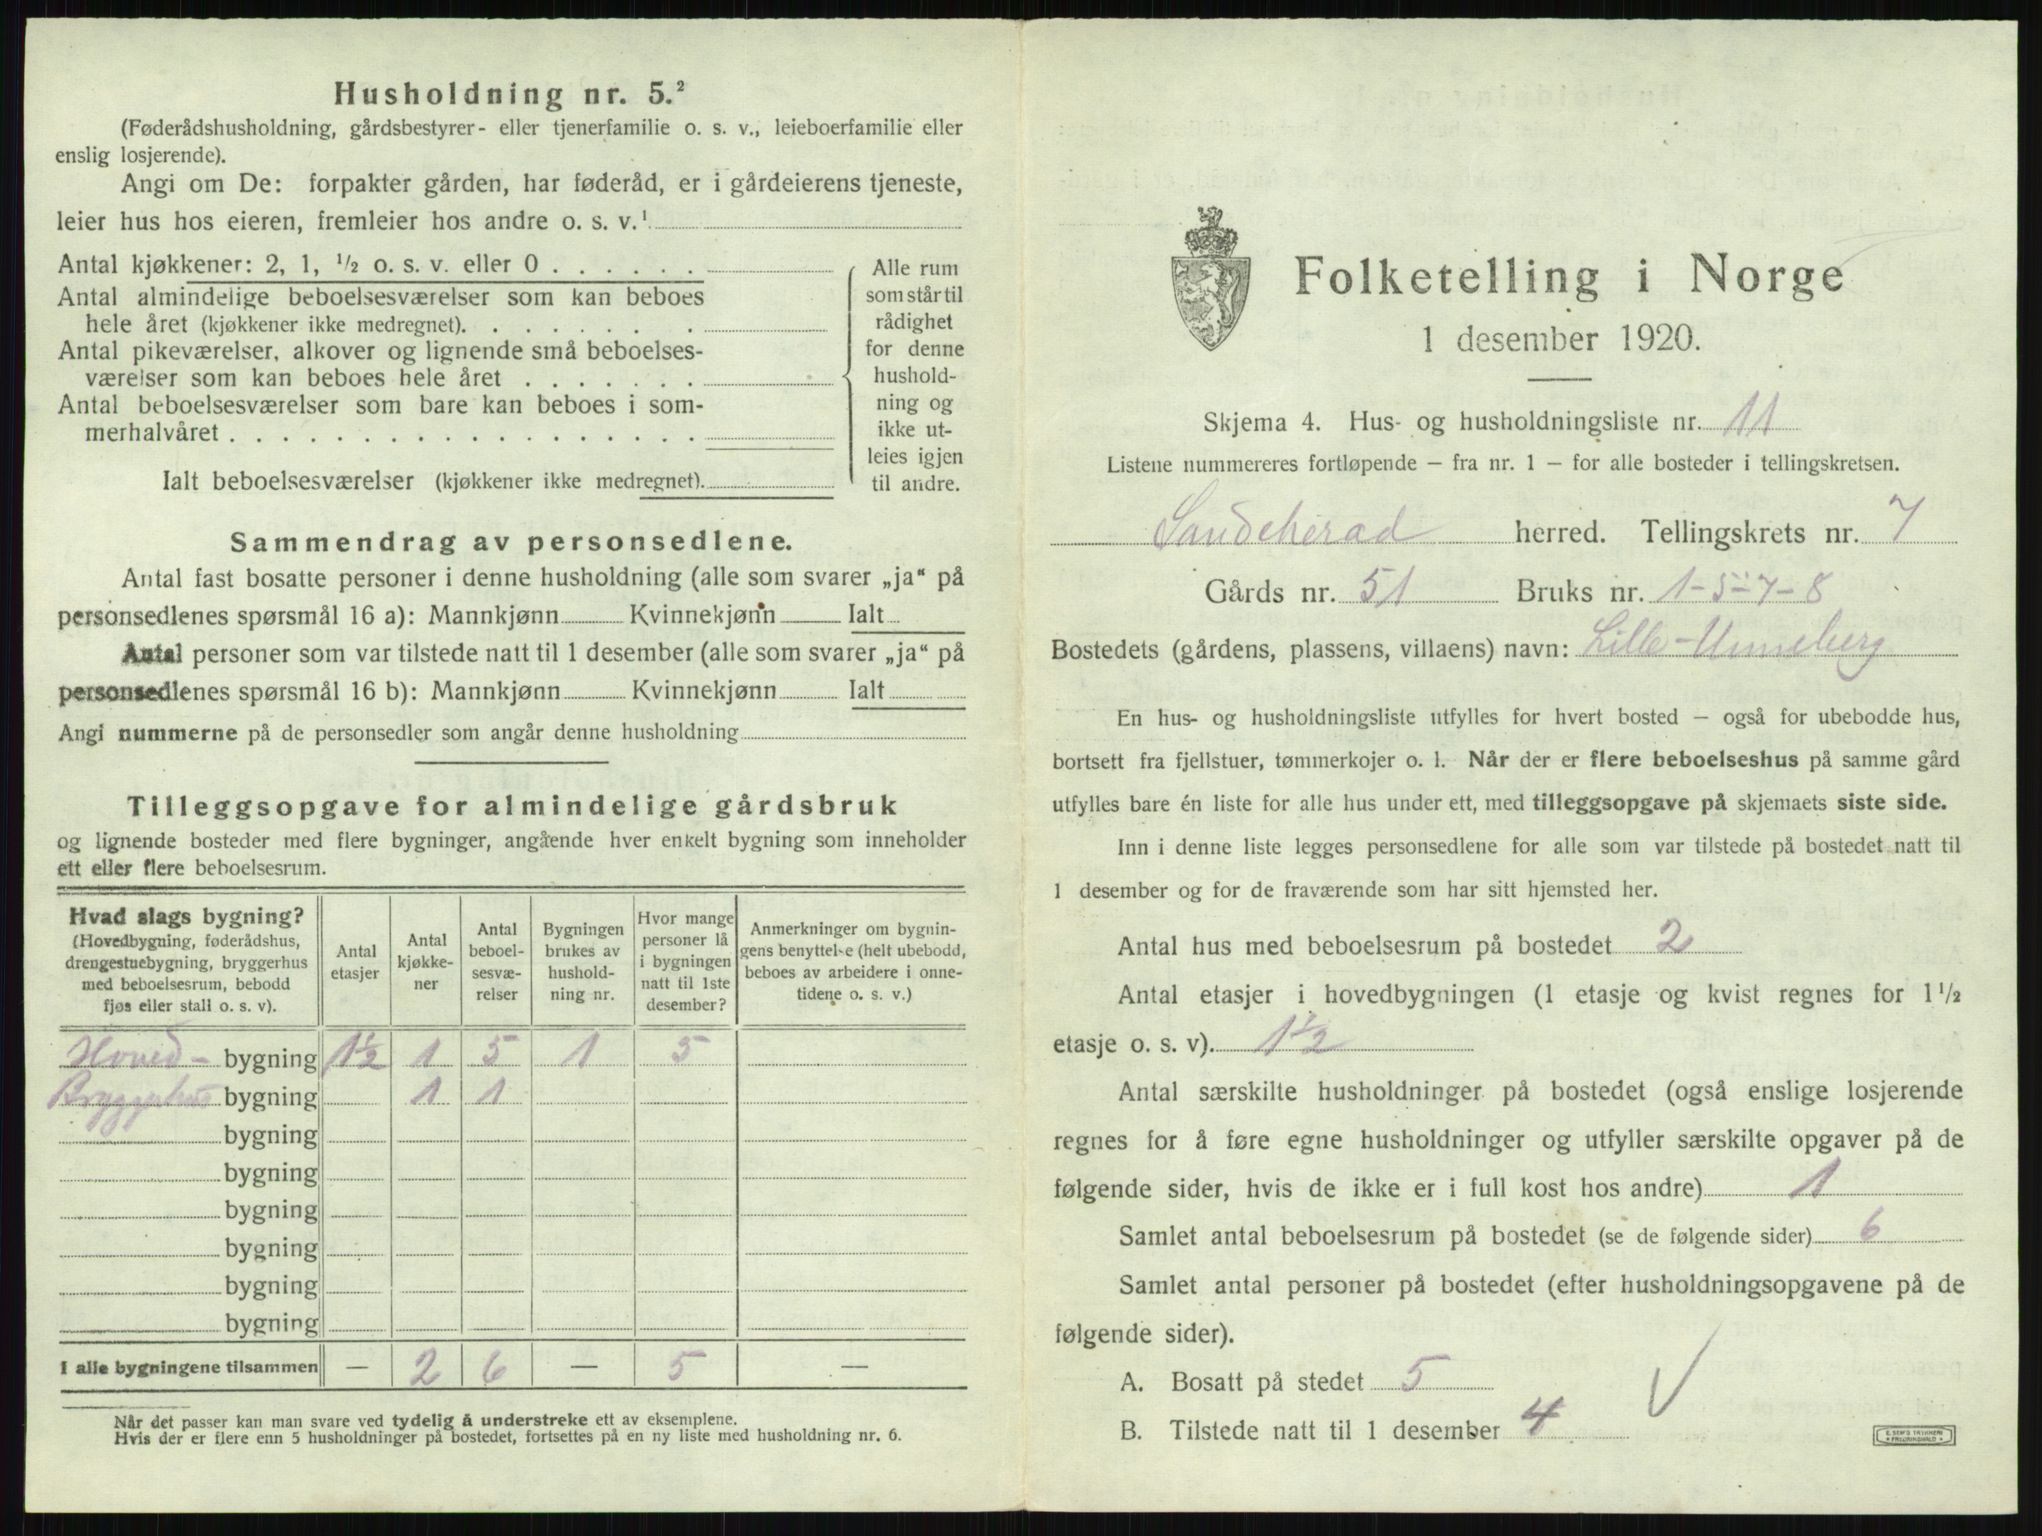 Husholdning nr. 5.²
(Føderådshusholdning, gårdsbestyrer- eller tjenerfamilie o. s. v., leieboerfamilie eller
enslig losjerende).
Angi om De: forpakter gården, har føderåd, er i gårdeierens tjeneste,
leier hus hos eieren, fremleier hos andre o. s. v.¹
Antal kjøkkener: 2, 1, ½ o. s. v. eller 0
Antal almindelige beboelsesværelser som kan beboes
hele året (kjøkkener ikke medregnet).
Antal pikeværelser, alkover og lignende små beboelses-
værelser som kan beboes hele året
Antal beboelsesværelser som bare kan beboes i som-
merhalvåret
Ialt beboelsesværelser (kjøkkener ikke medregnet).
Alle rum
som står til
rådighet
for denne
hushold-
ning og
ikke ut-
leies igjen
til andre.
Sammendrag av personsedlene.
Antal fast bosatte personer i denne husholdning (alle som svarer „ja“ på
personsedlenes spørsmål 16 a): Mannkjønn Kvinnekjønn Ialt
Antal personer som var tilstede natt til 1 desember (alle som svarer „ja“ på
personsedlenes spørsmål 16 b): Mannkjønn Kvinnekjønn Ialt
Angi nummerne på de personsedler som angår denne husholdning
Tilleggsopgave for almindelige gårdsbruk
og lignende bosteder med flere bygninger, angående hver enkelt bygning som inneholder
ett eller flere beboelsesrum.
Hvad slags bygning?
(Hovedbygning, føderådshus,
drengestuebygning, bryggerhus
med beboelsesrum, bebodd
fjøs eller stall o. s. v).
Antal
etasjer
Antal
kjøkke-
ner
Antal
beboel-
sesvæ-
relser
Bygningen
brukes av
hushold-
ning nr.
Hvor mange
personer lå
i bygningen
natt til 1ste
desember?
Anmerkninger om bygnin-
gens benyttelse (helt ubebodd,
beboes av arbeidere i onne-
tidene o. s. v.)
Hoved- bygning 1½ 1 5 1 5
Bryggerhus bygning 1 1
bygning
bygning
bygning
bygning
bygning
bygning
I alle bygningene tilsammen — 2 6 — 5 —
Når det passer kan man svare ved tydelig å understreke ett av eksemplene.
Hvis der er flere enn 5 husholdninger på bostedet, fortsettes på en ny liste med husholdning nr. 6.
Folketelling i Norge
1 desember 1920.
Skjema 4. Hus- og husholdningsliste nr. 11
Listene nummereres fortløpende – fra nr. 1 – for alle bosteder i tellingskretsen.
Sandeherad herred. Tellingskrets nr. 7
Gårds nr. 51 Bruks nr. 1-5-7-8
Bostedets (gårdens, plassens, villaens) navn: Lille-Unneberg
En hus- og husholdningsliste utfylles for hvert bosted – også for ubebodde hus,
bortsett fra fjellstuer, tømmerkojer o. l. Når der er flere beboelseshus på samme gård
utfylles bare én liste for alle hus under ett, med tilleggsopgave på skjemaets siste side.
Inn i denne liste legges personsedlene for alle som var tilstede på bostedet natt til
1 desember og for de fraværende som har sitt hjemsted her.
Antal hus med beboelsesrum på bostedet 2
Antal etasjer i hovedbygningen (1 etasje og kvist regnes for 1½
etasje o. s. v). 1½
Antal særskilte husholdninger på bostedet (også enslige losjerende
regnes for å føre egne husholdninger og utfyller særskilte opgaver på de
følgende sider, hvis de ikke er i full kost hos andre) 1
Samlet antal beboelsesrum på bostedet (se de følgende sider) 6
Samlet antal personer på bostedet (efter husholdningsopgavene på de
følgende sider).
A. Bosatt på stedet 5
B. Tilstede natt til 1 desember 4